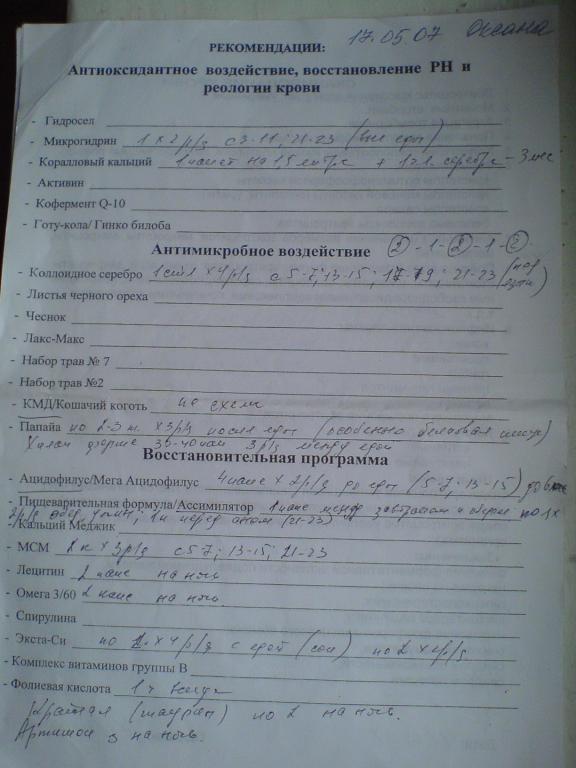 17.05.07 Оксана
РЕКОМЕНДАЦИИ:
Антиоксидантное воздействие, восстановление РН и
реологии крови
- Гидросел
- Микрогидрин 1 х 2 р/д с 9-11; 21-23 (вне еды)
- Коралловый кальций 1 пакет на 1,5 литра + 1 ч.л. серебра - 3 мес
- Активин
- Кофермент Q-10
- Готу-кола/ Гинко билоба
Антимикробное воздействие 2 - 1 - 2 - 1 - 2
- Коллоидное серебро 1 ст.л х 4 р/д с 5-7; 13-15; 17-19; 21-23
- Листья черного ореха
- Чеснок
- Лакс-Макс
- Набор трав № 7
- Набор трав №2
- КМД/Кошачий коготь по схеме
- Папайа по 2-3 т. х 3 р/д после еды (особенно белковая пища)
3 р/д между едой
Восстановительная программа
- Ацидофилус/Мега Ацидофилус 4 капс х 2 р/д до еды (5-7; 13-15)
- Пищеварительная формула/Ассимилятор 1 капс между завтраком и обедом по 1 х
1 к перед сном (21-23)
- Кальций Меджик
- МСМ 2 к х 3 р/д с 5-7; 13-15; 21-23
- Лецитин 2 капс на ночь
- Омега 3/60 2 капс на ночь.
- Спирулина
- Экста-Си по х 4 р/д с едой (сои) по 2 х 4 р/д
- Комплекс витаминов группы В
- Фолиевая кислота 1 т
по 2 на ночь.
Артишок 3 на ночь.